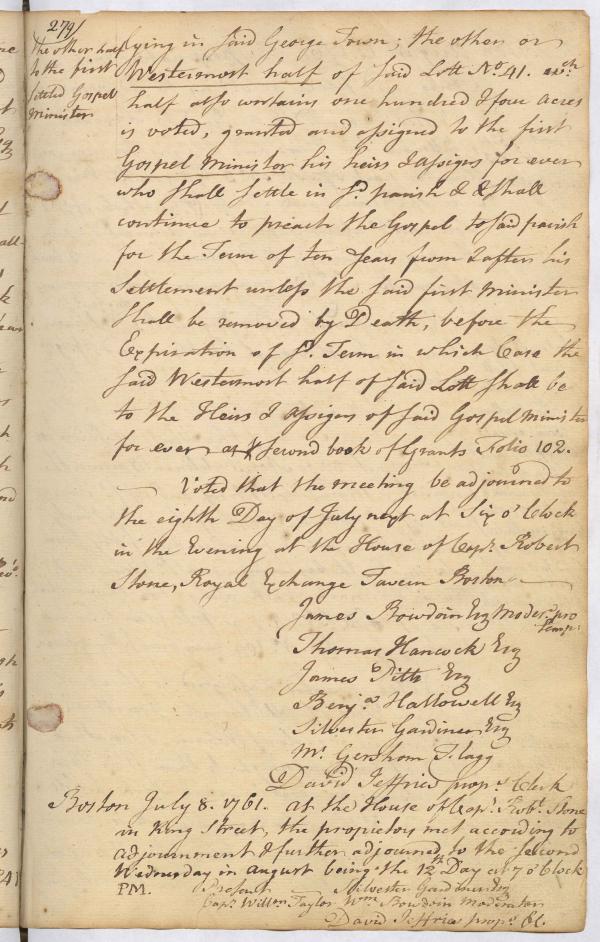 279/
The other half
to the first
settled Gospel
Minister
lying in said George Town; the other or
Westermost half of said Lott No. 41. wch
half also contains one hundred & four acres
is voted, granted and assigned to the first
Gospel Minister his heirs & assigns for ever
who shall settle in sd. parish & shall
continue to preach the Gospel to said parish
for the Term of ten years from & after his
Settlement unless the said first Minister
shall be removed by Death, before the
Expiration of sd. Term in which Case the
said Westermost half of said Lott shall be
to the Heirs & assigns of said Gospel Minister
for ever as Second book of Grants Folio 102.
Voted that the meeting be adjourned to
the eighth Day of July next at Six o'Clock
in the Evening at the House of Capt. Robert
Stone, Royal Exchange Tavern Boston
James Bowdoin Esq Moderr. pro
temp:
Thomas Hancock Esq
James Pitts Esq
Benja. Hallowell Esq
Silvester Gardiner Esq
Mr. Gershom Flagg
David Jeffries proprs Clerk
Boston July 8. 1761. at the House of Capt. Robt. Stone
in King Street, the proprietors met according to
adjournment & further adjourned to the second
Wednesday in august being the 12th Day at 7 o'Clock
PM.
Present Silvester Gardiner Esq
Capt. Willm. Taylor Wm. Bowdoin Moderator
David Jeffries propr. Cl.